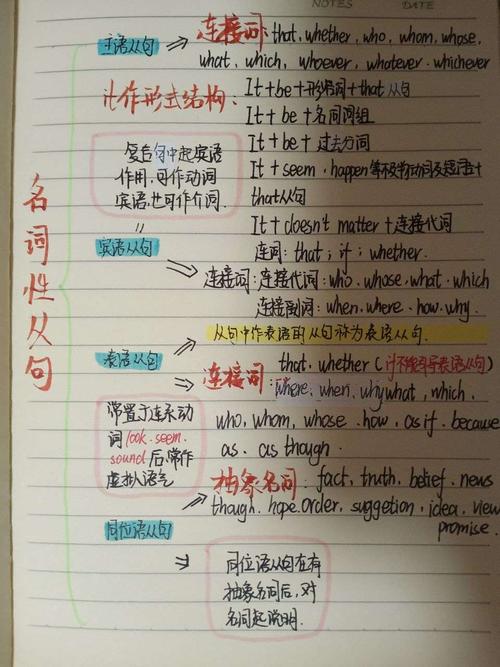 NOTES DATE
名词性从句
主语从句 ⇒ 连接词: that, whether, who, whom, whose,
what, which, whoever, whatever, whichever
it作形式结构: It + be + 形容词 + that 从句
It + be + 名词词组
It + be + 过去分词
It + seem, happen等不及物动词及短语 +
that从句
It + doesn't matter + 连接代词
复合句中起宾语
作用,可作动词
宾语,也可作介词.
宾语从句
连词: that ; if ; whether.
⇒ 连接词: 连接代词: who. whose. what. which
连接副词: when. where. how. why.
表语从句 ⇒ 从句中作表语的从句称为表语从句.
⇒ 连接词: that, whether (if不能引导表语从句)
where, when, why what, which,
who, whom, whose, how, as if, because
as, as though.
常置于连系动
词look. seem.
sound后,常作
虚拟语气
同位语从句 ⇒ 抽象名词: fact, truth, belief, news
though. hope. order, suggetion, idea, view
promise.
⇒ 同位语从句在有
抽象名词后,对
名词起说明.